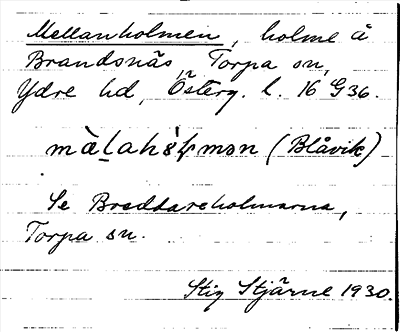 Mellanholmen, holme å
Brandsnäs, Torpa sn,
Ydre hd, Österg. l. 16 G36.
(Blåvik)
Se Breddareholmarna,
Torpa sn.
Stig Stjärne 1930.